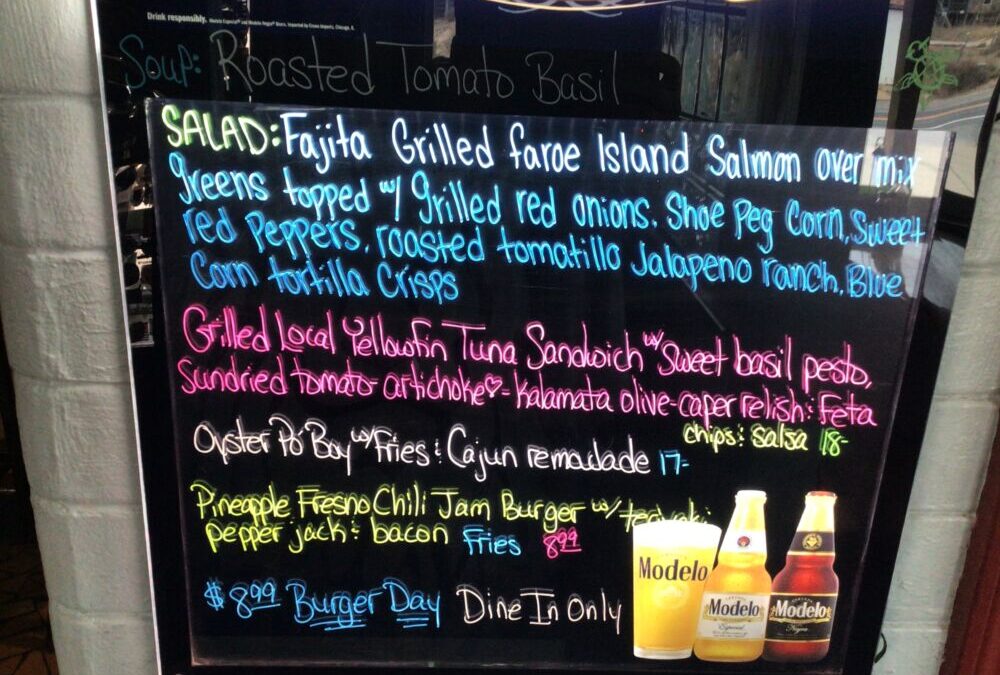 Drink responsibly.
Soup: Roasted Tomato Basil
SALAD: Fajita Grilled faroe Island Salmon over mix
greens topped w/ grilled red onions. Shoe Peg Corn, Sweet
red Peppers, roasted tomatillo Jalapeno ranch, Blue
Corn tortilla Crisps
Grilled Local Yellowfin Tuna Sandwich w/ sweet basil pesto,
Sundried tomato-artichoke♡-kalamata olive-caper relish & Feta
chips & salsa 18-
Oyster Po Boy w/ Fries & Cajun remoulade 17-
Pineapple Fresno Chili Jam Burger w/ teriyaki
pepper jack & bacon Fries 8.99
$8.99 Burger Day Dine In Only
Modelo
Modelo
Especial
Modelo
Negra